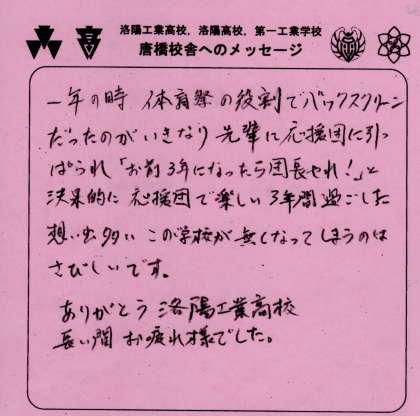 洛陽工業高校，洛陽高校，第一工業学校
唐橋校舎へのメッセージ
一年の時 体育祭の役割でバックスクリーン
だったのがいきなり先輩に応援団に引っ
ぱられ「お前3年になったら団長やれ!」と
決果的に 応援団で楽しい3年間過ごした
想い出多い この学校が無しなってしまうのは
さびしいです。
ありがとう 洛陽工業高校
長い間 お疲れ様でした。